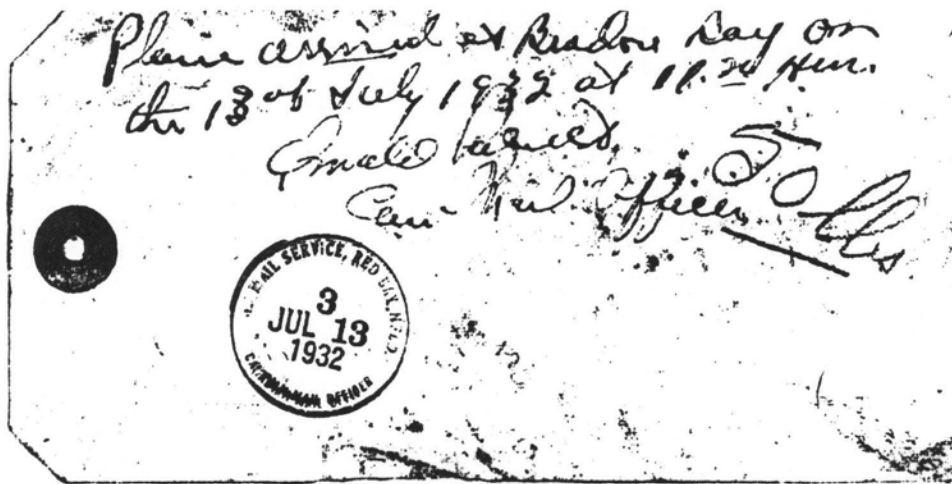 Plane arrived at Bradore Bay on
the 13 of July 1932 at 11.20 A.m.
Can. Mail Officer
50 lbs
AIL SERVICE, RED BAY, NFLD.
3
JUL 13
1932
CANADIAN MAIL OFFICER